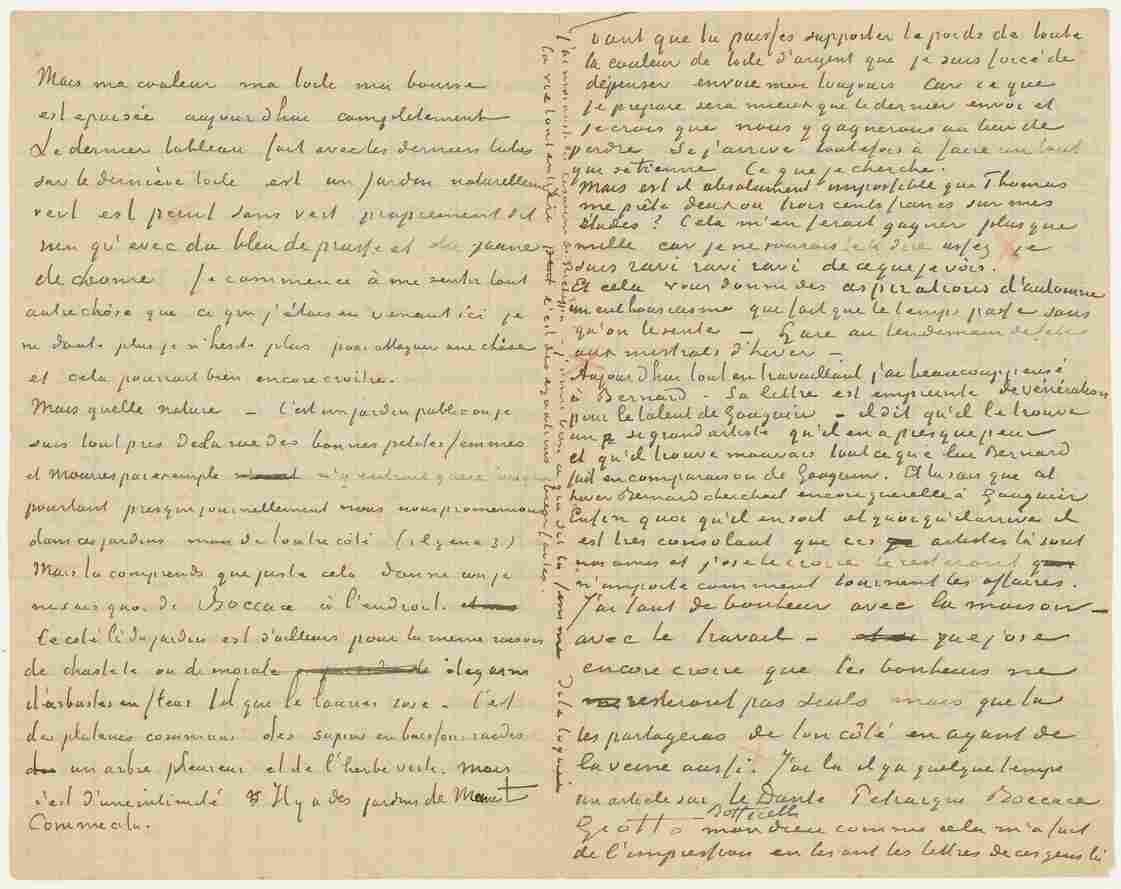 Mais ma couleur ma toile ma bourse
est epuisée aujourd'hui completement
Le dernier tableau fait avec les derniers tubes
sur la dernière toile est un jardin naturellement
vert est peint sans vert proprement dit
rien qu'avec du bleu de prusse et du jaune
de chrome Je commence à me sentir tout
autre chôse que ce que j'étais en venant ici je
ne doute plus je n'hesite plus pour attaquer une chôse
et cela pourrait bien encore croitre.
Mais quelle nature – C'est un jardin public ou je
suis tout pres de la rue des bonnes petites femmes
et Mourier par exemple n'y entrait guere
pourtant presque journellement nous nous promenions
dans ces jardins mais de l'autre côté (il y en a 3)
Mais tu comprends que juste cela donne un je
ne sais quoi de Boccace à l'endroit.
Ce côté là du jardin est d'ailleurs pour la meme raison
de chasteté ou de morale degarni
d'arbustes en fleur tel que le laurier rose – C'est
des platanes communs des sapins en buissons raides
un arbre pleureur et de l'herbe verte. Mais
c'est d'une intimité Il y a des jardins de Manet
comme cela.
tant que tu puisses supporter le poids de toute
la couleur de toile d'argent que je suis forcé de
dépenser envoie moi toujours Car ce que
je prepare sera mieux que le dernier envoi et
je crois que nous y gagnerons au lieu de
perdre Si j'arrive toutefois à faire un tout
qui se tienne Ce que je cherche.
Mais est il absolument impossible que Thomas
me prète deux ou trois cents francs sur mes
études? Cela m'en ferait gagner plus que
mille car je ne saurais te le dire assez je
suis ravi ravi ravi de ce que je vois.
Et cela vous donne des aspirations d'automne
un enthousiasme qui fait que le temps passe sans
qu'on le sente – Gare au lendemain de fete
aux mistrals d'hiver –
Aujourd'hui tout en travaillant j'ai beaucoup pensé
à Bernard – Sa lettre est empreinte de vénération
pour le talent de Gauguin – il dit qu'il le trouve
un si grand artiste qu'il en a presque peur
et qu'il trouve mauvais tout ce que lui Bernard
fait en comparaison de Gauguin. Et tu sais que cet
hiver Bernard cherchait encore querelle à Gauguin
Enfin quoi qu'il en soit et quoi qu'il arrive il
est très consolant que ces artistes là sont
nos amis et j'ose le croire le resteront
n'importe comment tournent les affaires.
J'ai tant de bonheur avec la maison –
avec le travail – que j'ose
encore croire que les bonheurs ne
resteront pas seuls mais que tu
les partageras de ton côté en ayant de
la veine aussi. J'ai lu il y a quelque temps
un article sur le Dante Petrarque Boccace
Giotto Botticelli mon dieu comme cela m'a fait
de l'impression en lisant les lettres de ces gens là